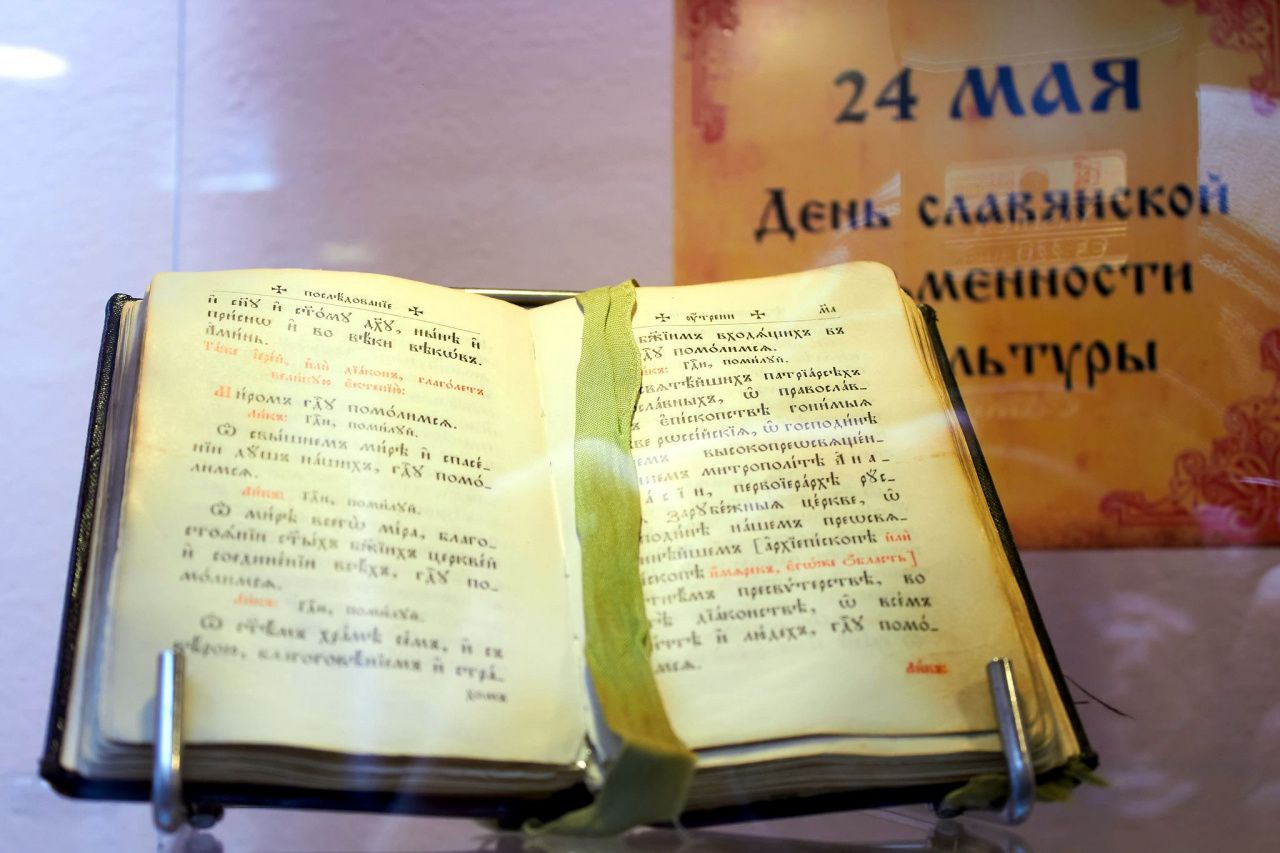 24 МАЯ
День славянской
менности
льтуры
послѣдованїе
и҆ сн҃у и҆ ст҃о́му дх҃у, ны́нѣ и҆
при́снѡ и҆ во вѣ́ки вѣкѡ́въ.
А҆ми́нь.
Та́же і҆ере́й, и҆лѝ дїа́конъ, глаго́летъ
вели́кую є҆ктенїю̀:
Ми́ромъ гд҇ꙋ помо́лимсѧ.
Ли́къ: гд҇и, поми́лꙋй.
Ѽ свы́шнемъ ми́рѣ и҆ спасе́-
нїи дꙋ́шъ на́шихъ, гд҇ꙋ помо́-
лимсѧ.
Ли́къ: гд҇и, поми́лꙋй.
Ѽ ми́рѣ всегѡ̀ мі́ра, благо-
стоѧ́нїи ст҃ы́хъ бж҃їихъ церкве́й
и҆ соедине́нїи всѣ́хъ, гд҇ꙋ по-
мо́лимсѧ.
Ли́къ: гд҇и, поми́лꙋй.
Ѽ ст҃ѣ́мъ хра́мѣ се́мъ, и҆ съ
вѣ́рою, благоговѣ́нїемъ и҆ стра́-
хомъ
ѹ҆́трени м҃а
бж҃їимъ входѧ́щихъ въ
помо́лимсѧ.
гд҇и, поми́лꙋй.
свѧтѣ́йшихъ патрїа́рсѣхъ
правосла́в-
є҆пі́скопствѣ гони́мыѧ
рѡссі́йскїѧ, ѽ господи́нѣ
высокопреѡсвѧще́н-
митрополі́тѣ А҆на-
первоїера́рхѣ рꙋ́с-
Зарꙋбе́жныѧ це́ркве, ѽ
на́шемъ преѡсвѧ-
[а҆рхїепі́скопѣ и҆лѝ
и҆́мѧрекъ, є҆гѡ́же ѻ҆́бласть]
пресвѵ́терствѣ, во
дїа́конствѣ, ѽ все́мъ
и҆ лю́дехъ, гд҇ꙋ помо́-
Ли́къ: